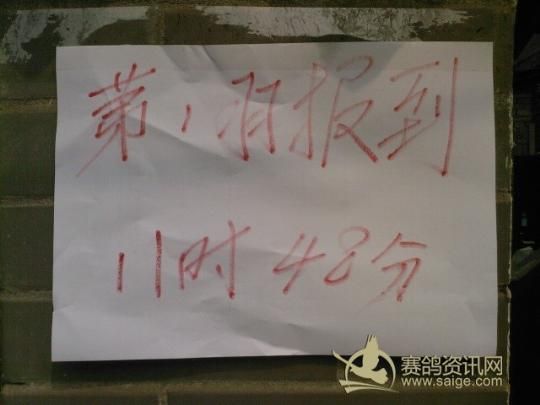 第1羽报到
11时48分
赛鸽资讯网
www.saige.com